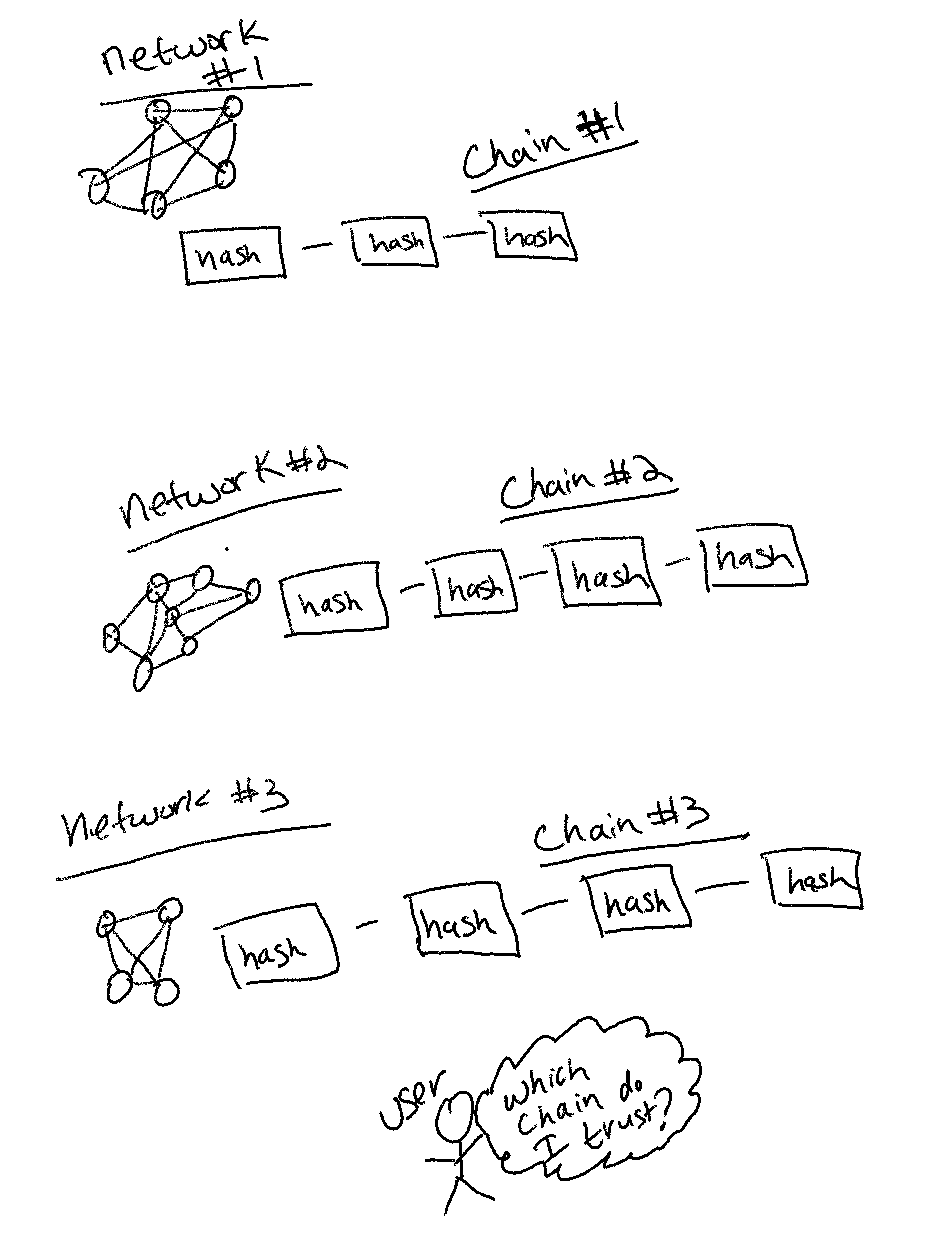 network
#1
Chain #1
hash
hash
hash
network #2
Chain #2
hash
hash
hash
hash
Network #3
Chain #3
hash
hash
hash
hash
user
which
chain do
I trust?